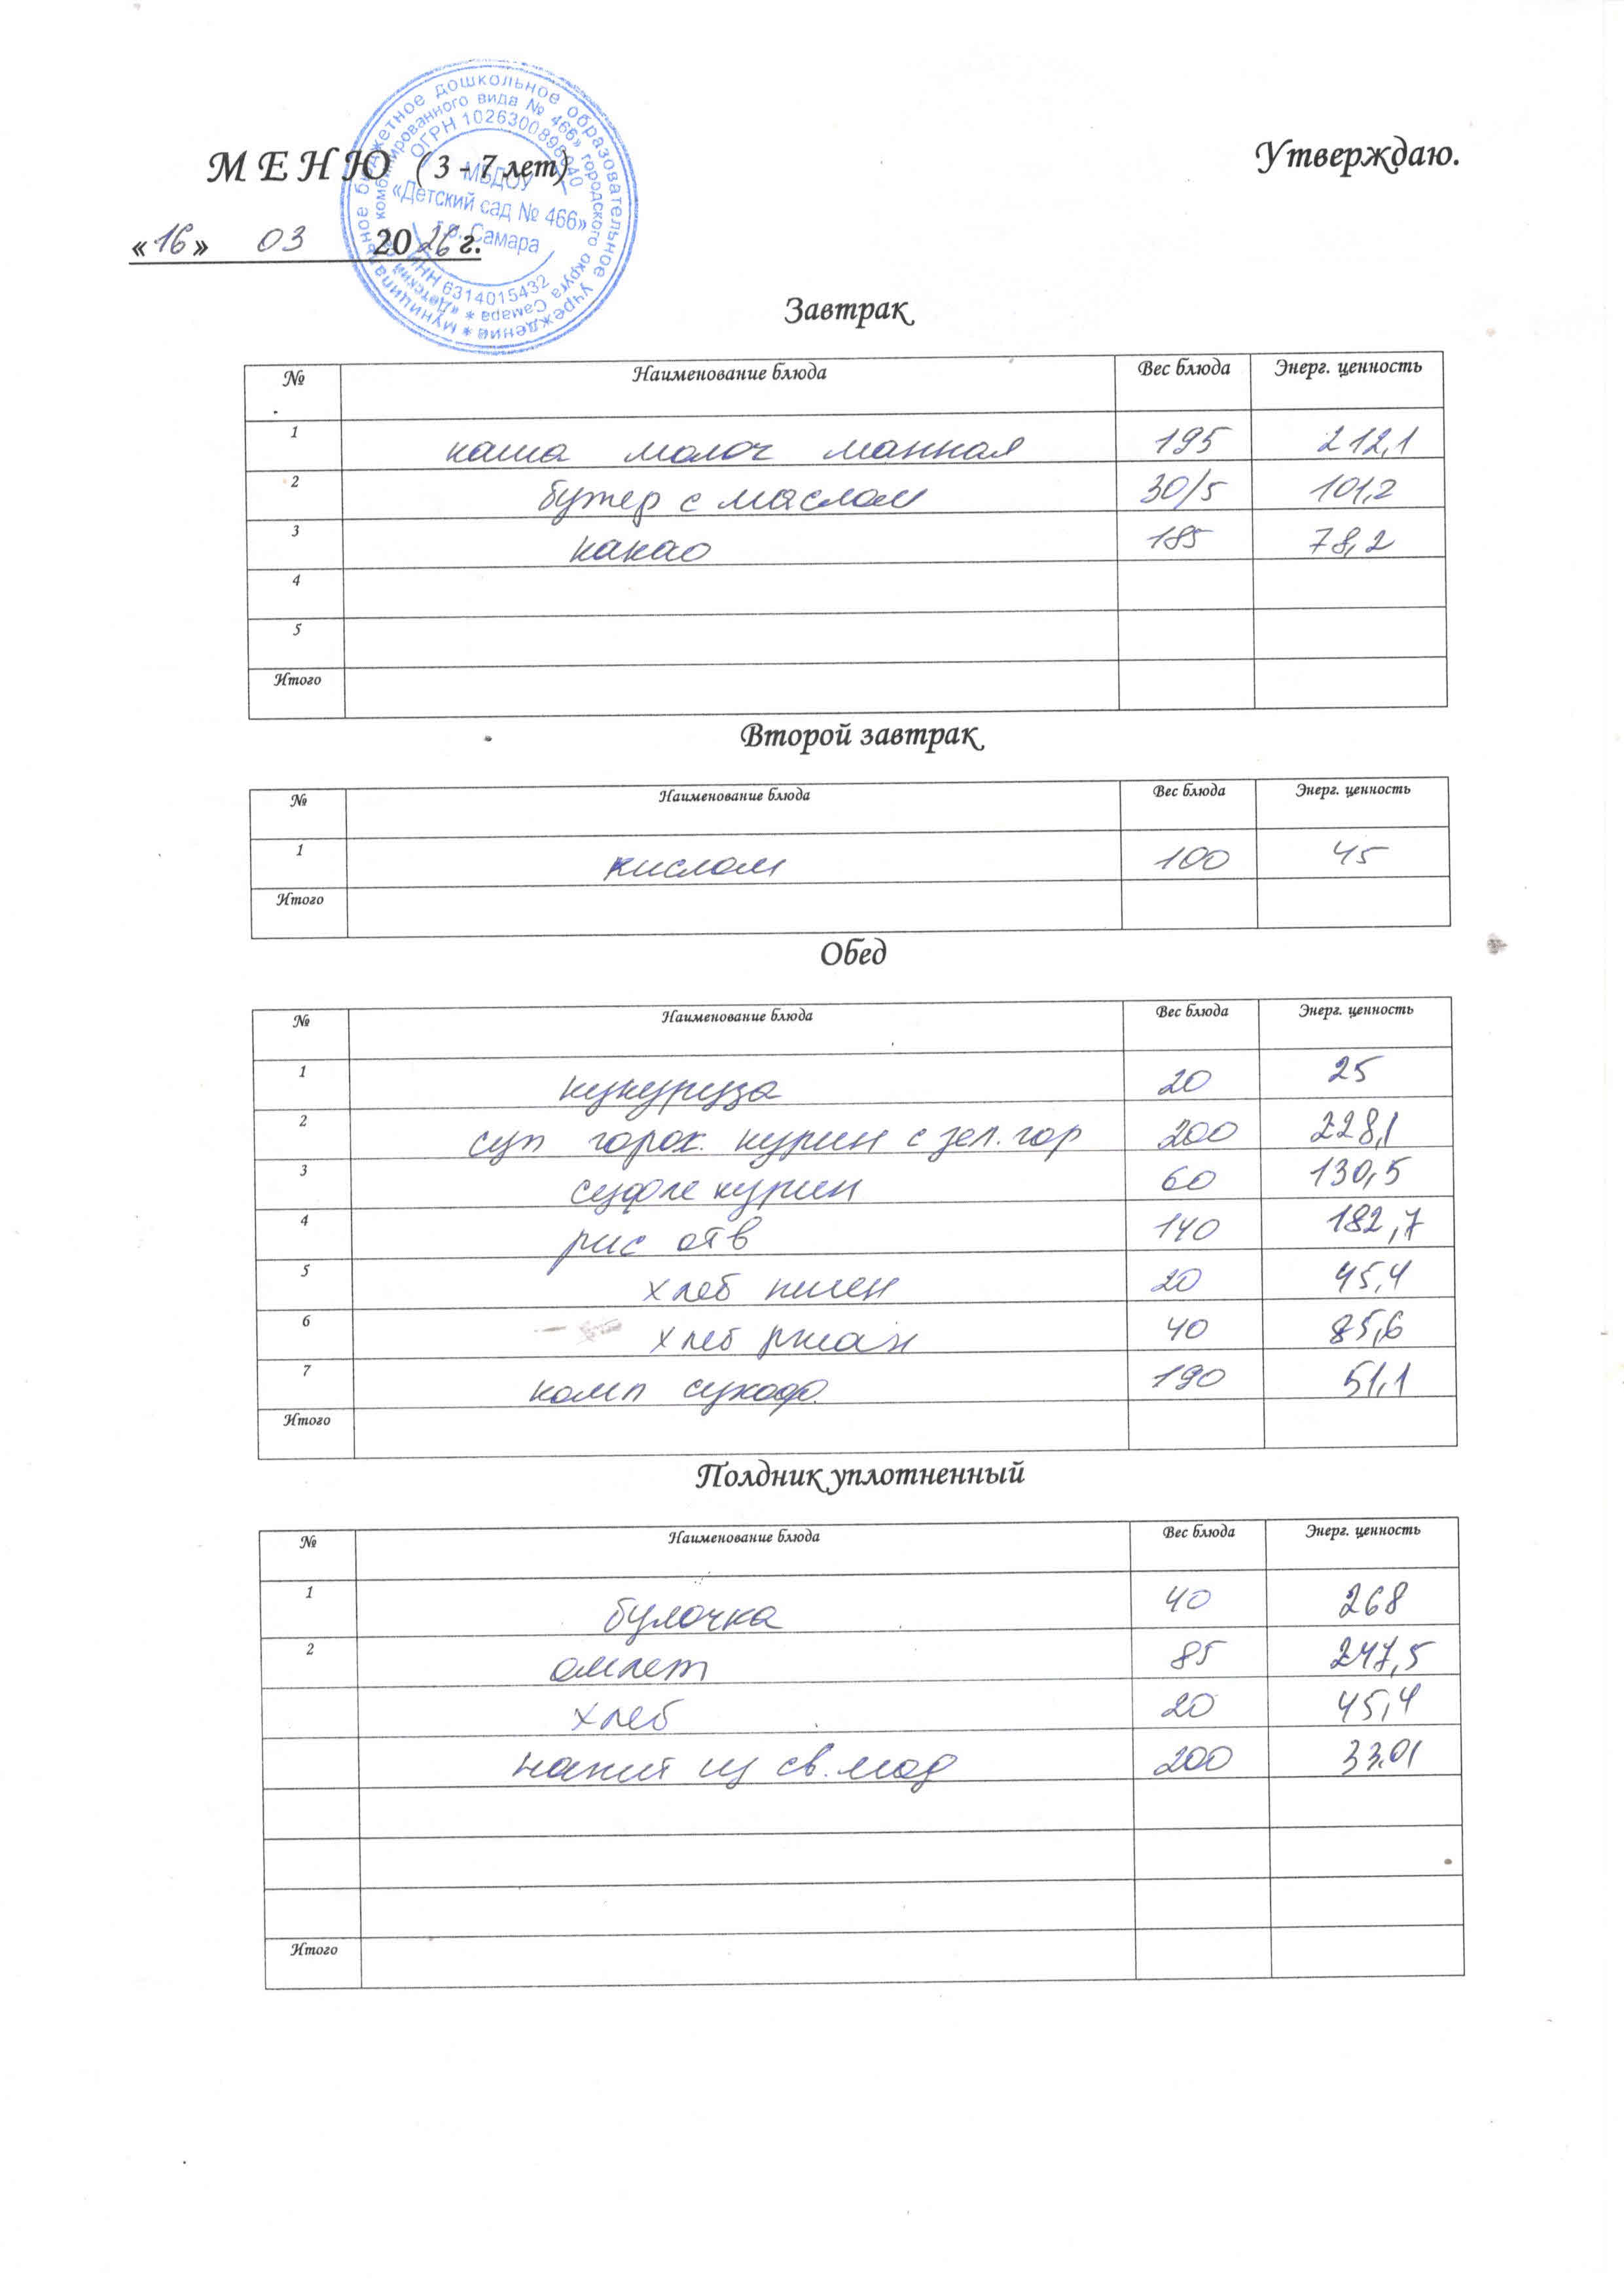 М Е Н Ю ( 3 - 7 лет)
Утверждаю.
« 16 » 03 20 26 г.
муниципальное бюджетное дошкольное образовательное учреждение *
комбинированного вида № 466» городского округа Самара * «Детский
ОГРН
МБДОУ
«Детский сад № 466»
г.о. Самара
ИНН 6314015432
Завтрак
№ Наименование блюда Вес блюда Энерг. ценность
1 каша молоч манная 195 212,1
2 бутер с маслом 30/5 101,2
3 какао 185 78,2
4
5
Итого
Второй завтрак
№ Наименование блюда Вес блюда Энерг. ценность
1 кислом 100 45
Итого
Обед
№ Наименование блюда Вес блюда Энерг. ценность
1 кукуруза 20 25
2 суп горох. курин с зел. гор 200 228,1
3 суфле курин 60 130,5
4 рис отв 140 182,7
5 хлеб пшен 20 45,4
6 хлеб ржан 40 85,6
7 комп сухофр. 190 51,1
Итого
Полдник уплотненный
№ Наименование блюда Вес блюда Энерг. ценность
1 булочка 40 268
2 омлет 85 247,5
хлеб 20 45,4
напит из св. 200 33.01
Итого